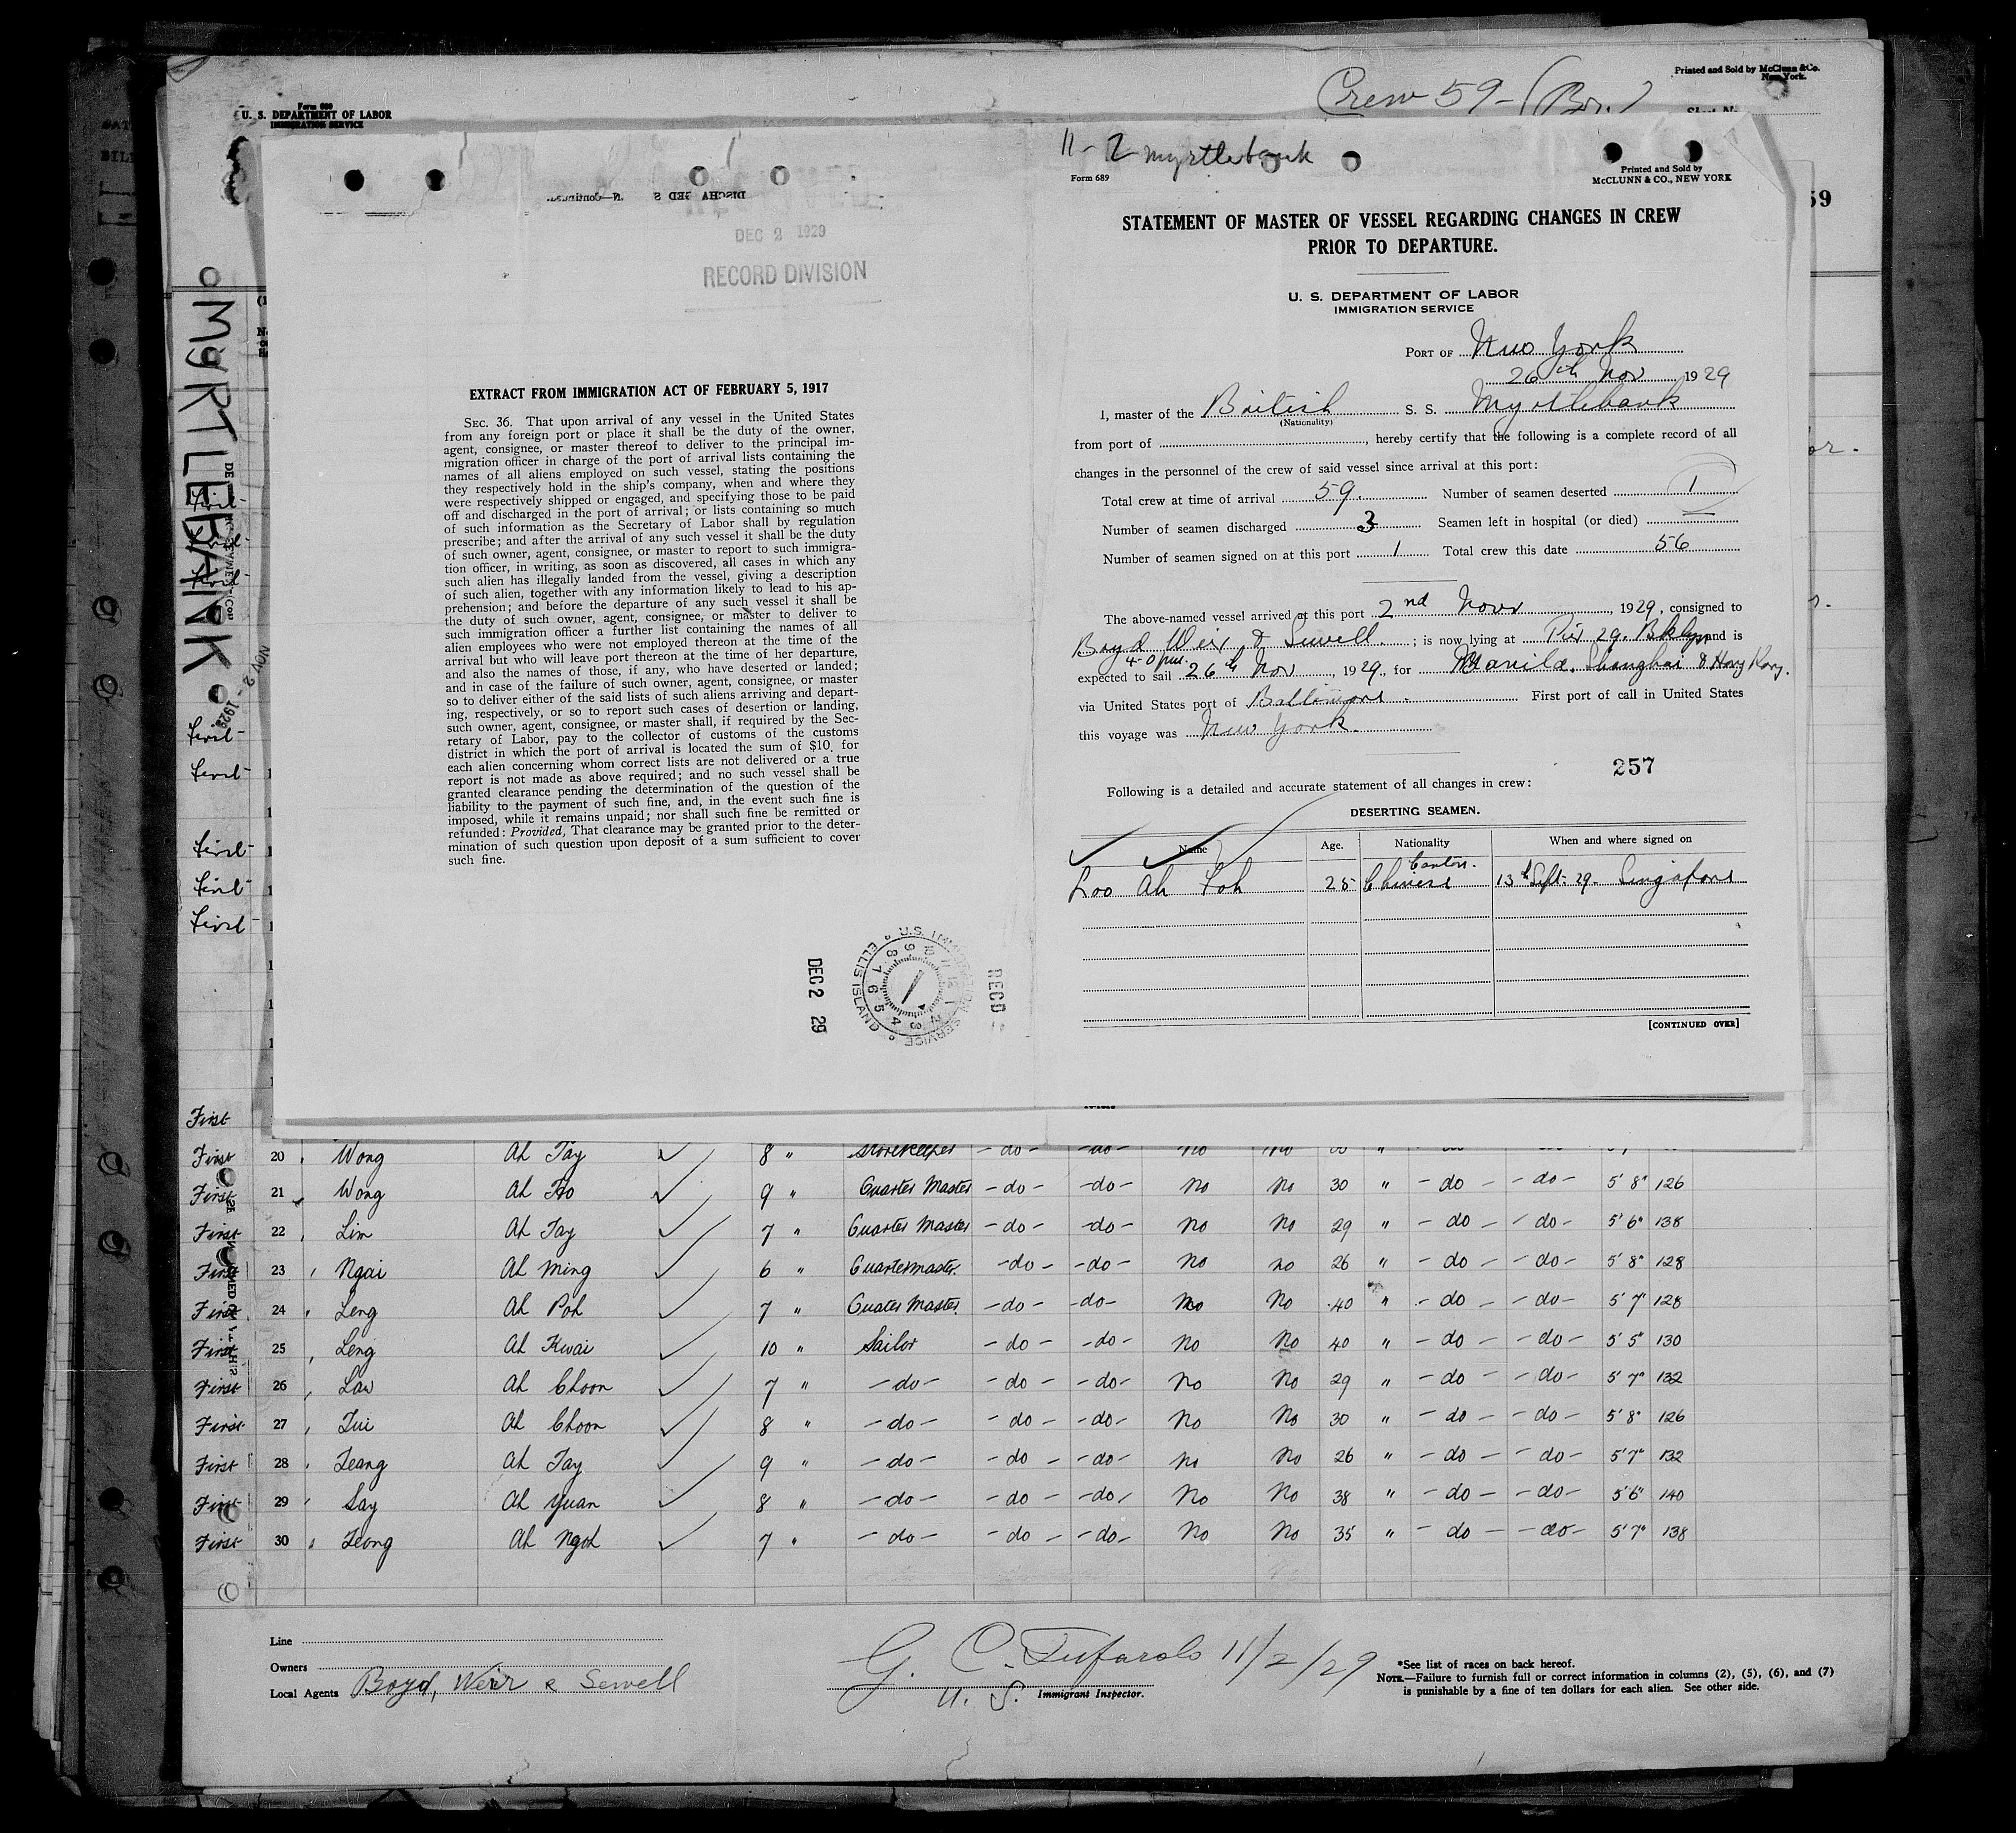 Form 689
U. S. DEPARTMENT OF LABOR
IMMIGRATION SERVICE
Crew 59-(Br.)
Printed and Sold by McClunn & Co.
New York.
59
MYRTLEBANK
NOV 2 - 1929
DEC 2 1929
RECORD DIVISION
EXTRACT FROM IMMIGRATION ACT OF FEBRUARY 5, 1917
SEC. 36. That upon arrival of any vessel in the United States
from any foreign port or place it shall be the duty of the owner,
agent, consignee, or master thereof to deliver to the principal im-
migration officer in charge of the port of arrival lists containing the
names of all aliens employed on such vessel, stating the positions
they respectively hold in the ship's company, when and where they
were respectively shipped or engaged, and specifying those to be paid
off and discharged in the port of arrival; or lists containing so much
of such information as the Secretary of Labor shall by regulation
prescribe; and after the arrival of any such vessel it shall be the duty
of such owner, agent, consignee, or master to report to such immigra-
tion officer, in writing, as soon as discovered, all cases in which any
such alien has illegally landed from the vessel, giving a description
of such alien, together with any information likely to lead to his ap-
prehension; and before the departure of any such vessel it shall be
the duty of such owner, agent, consignee, or master to deliver to
such immigration officer a further list containing the names of all
alien employees who were not employed thereon at the time of the
arrival but who will leave port thereon at the time of her departure,
and also the names of those, if any, who have deserted or landed;
and in case of the failure of such owner, agent, consignee, or master
so to deliver either of the said lists of such aliens arriving and depart-
ing, respectively, or so to report such cases of desertion or landing,
such owner, agent, consignee, or master shall, if required by the Sec-
retary of Labor, pay to the collector of customs of the customs
district in which the port of arrival is located the sum of $10. for
each alien concerning whom correct lists are not delivered or a true
report is not made as above required; and no such vessel shall be
granted clearance pending the determination of the question of the
liability to the payment of such fine, and, in the event such fine is
imposed, while it remains unpaid; nor shall such fine be remitted or
refunded: Provided, That clearance may be granted prior to the deter-
mination of such question upon deposit of a sum sufficient to cover
such fine.
DEC 2 29
U.S. IMMIGRATION SERVICE
ELLIS ISLAND
RECD
11-2 Myrtlebank
Form 689
Printed and Sold by
McCLUNN & CO., NEW YORK
STATEMENT OF MASTER OF VESSEL REGARDING CHANGES IN CREW
PRIOR TO DEPARTURE.
U. S. DEPARTMENT OF LABOR
IMMIGRATION SERVICE
PORT OF New York
26th Nov 1929
I, master of the British S. S. Myrtlebank
(Nationality)
from port of , hereby certify that the following is a complete record of all
changes in the personnel of the crew of said vessel since arrival at this port:
Total crew at time of arrival 59. Number of seamen deserted 1
Number of seamen discharged 3 Seamen left in hospital (or died)
Number of seamen signed on at this port 1 Total crew this date 56
The above-named vessel arrived at this port 2nd Novr 1929, consigned to
Boyd Weir & Sewell. ; is now lying at Pier 29. Bklyn and is
4-0 pm.
expected to sail 26th Nov , 1929., for Manila. Shanghai & Hong Kong.
via United States port of Baltimore. First port of call in United States
this voyage was New York.
257
Following is a detailed and accurate statement of all changes in crew:
DESERTING SEAMEN.
Name Age. Nationality When and where signed on
Loo Ah Foh 25 Chinese Canton. 13th Sept. 29. Singapore
[CONTINUED OVER]
First
First 20 Wong Ah Tay 8 " Storekeeper - do - - do - No No
First 21 Wong Ah Ho 9 " Quarter Master - do - - do - No No 30 " - do - - do - 5' 8" 126
First 22 Lim Ah Tay 7 " Quarter Master - do - - do - No No 29 " - do - - do - 5' 6" 138
First 23 Ngai Ah Ming 6 " Quartermaster. - do - - do - No No 26 " - do - - do - 5' 8" 128
First 24 Leng Ah Poh 7 " Quater Master. - do - - do - No No 40 " - do - - do - 5' 7" 128
First 25 Leng Ah Kwai 10 " Sailor - do - - do - No No 40 " - do - - do - 5' 5" 130
First 26 Law Ah Choon 7 " - do - - do - - do - No No 29 " - do - - do - 5' 7" 132
First 27 Lui Ah Choon 8 " - do - - do - - do - No No 30 " - do - - do - 5' 8" 126
First 28 Teang Ah Tay 9 " - do - - do - - do - No No 26 " - do - - do - 5' 7" 132
First 29 Say Ah Yuan 8 " - do - - do - - do - No No 38 " - do - - do - 5' 6" 140
First 30 Teong Ah Ngoh 7 " - do - - do - - do - No No 35 " - do - - do - 5' 7" 138
Line
Owners
Local Agents Boyd, Weir & Sewell
G. C. Tufarolo 11/2/29
U. S. Immigrant Inspector.
*See list of races on back hereof.
NOTE.—Failure to furnish full or correct information in columns (2), (5), (6), and (7)
is punishable by a fine of ten dollars for each alien. See other side.